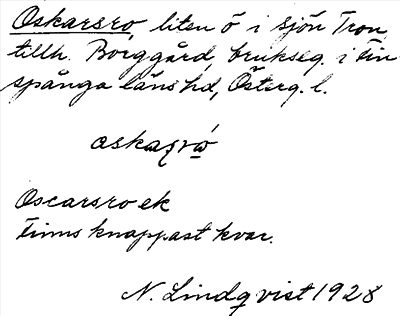 Oskarsro, liten ö i sjön Tron,
tillh. Borggård, brukseg. i Fin
spånga länshd, Österg. l.
oskaṣrò
Oscarsro ek
Finns knappast kvar.
N. Lindqvist 1928